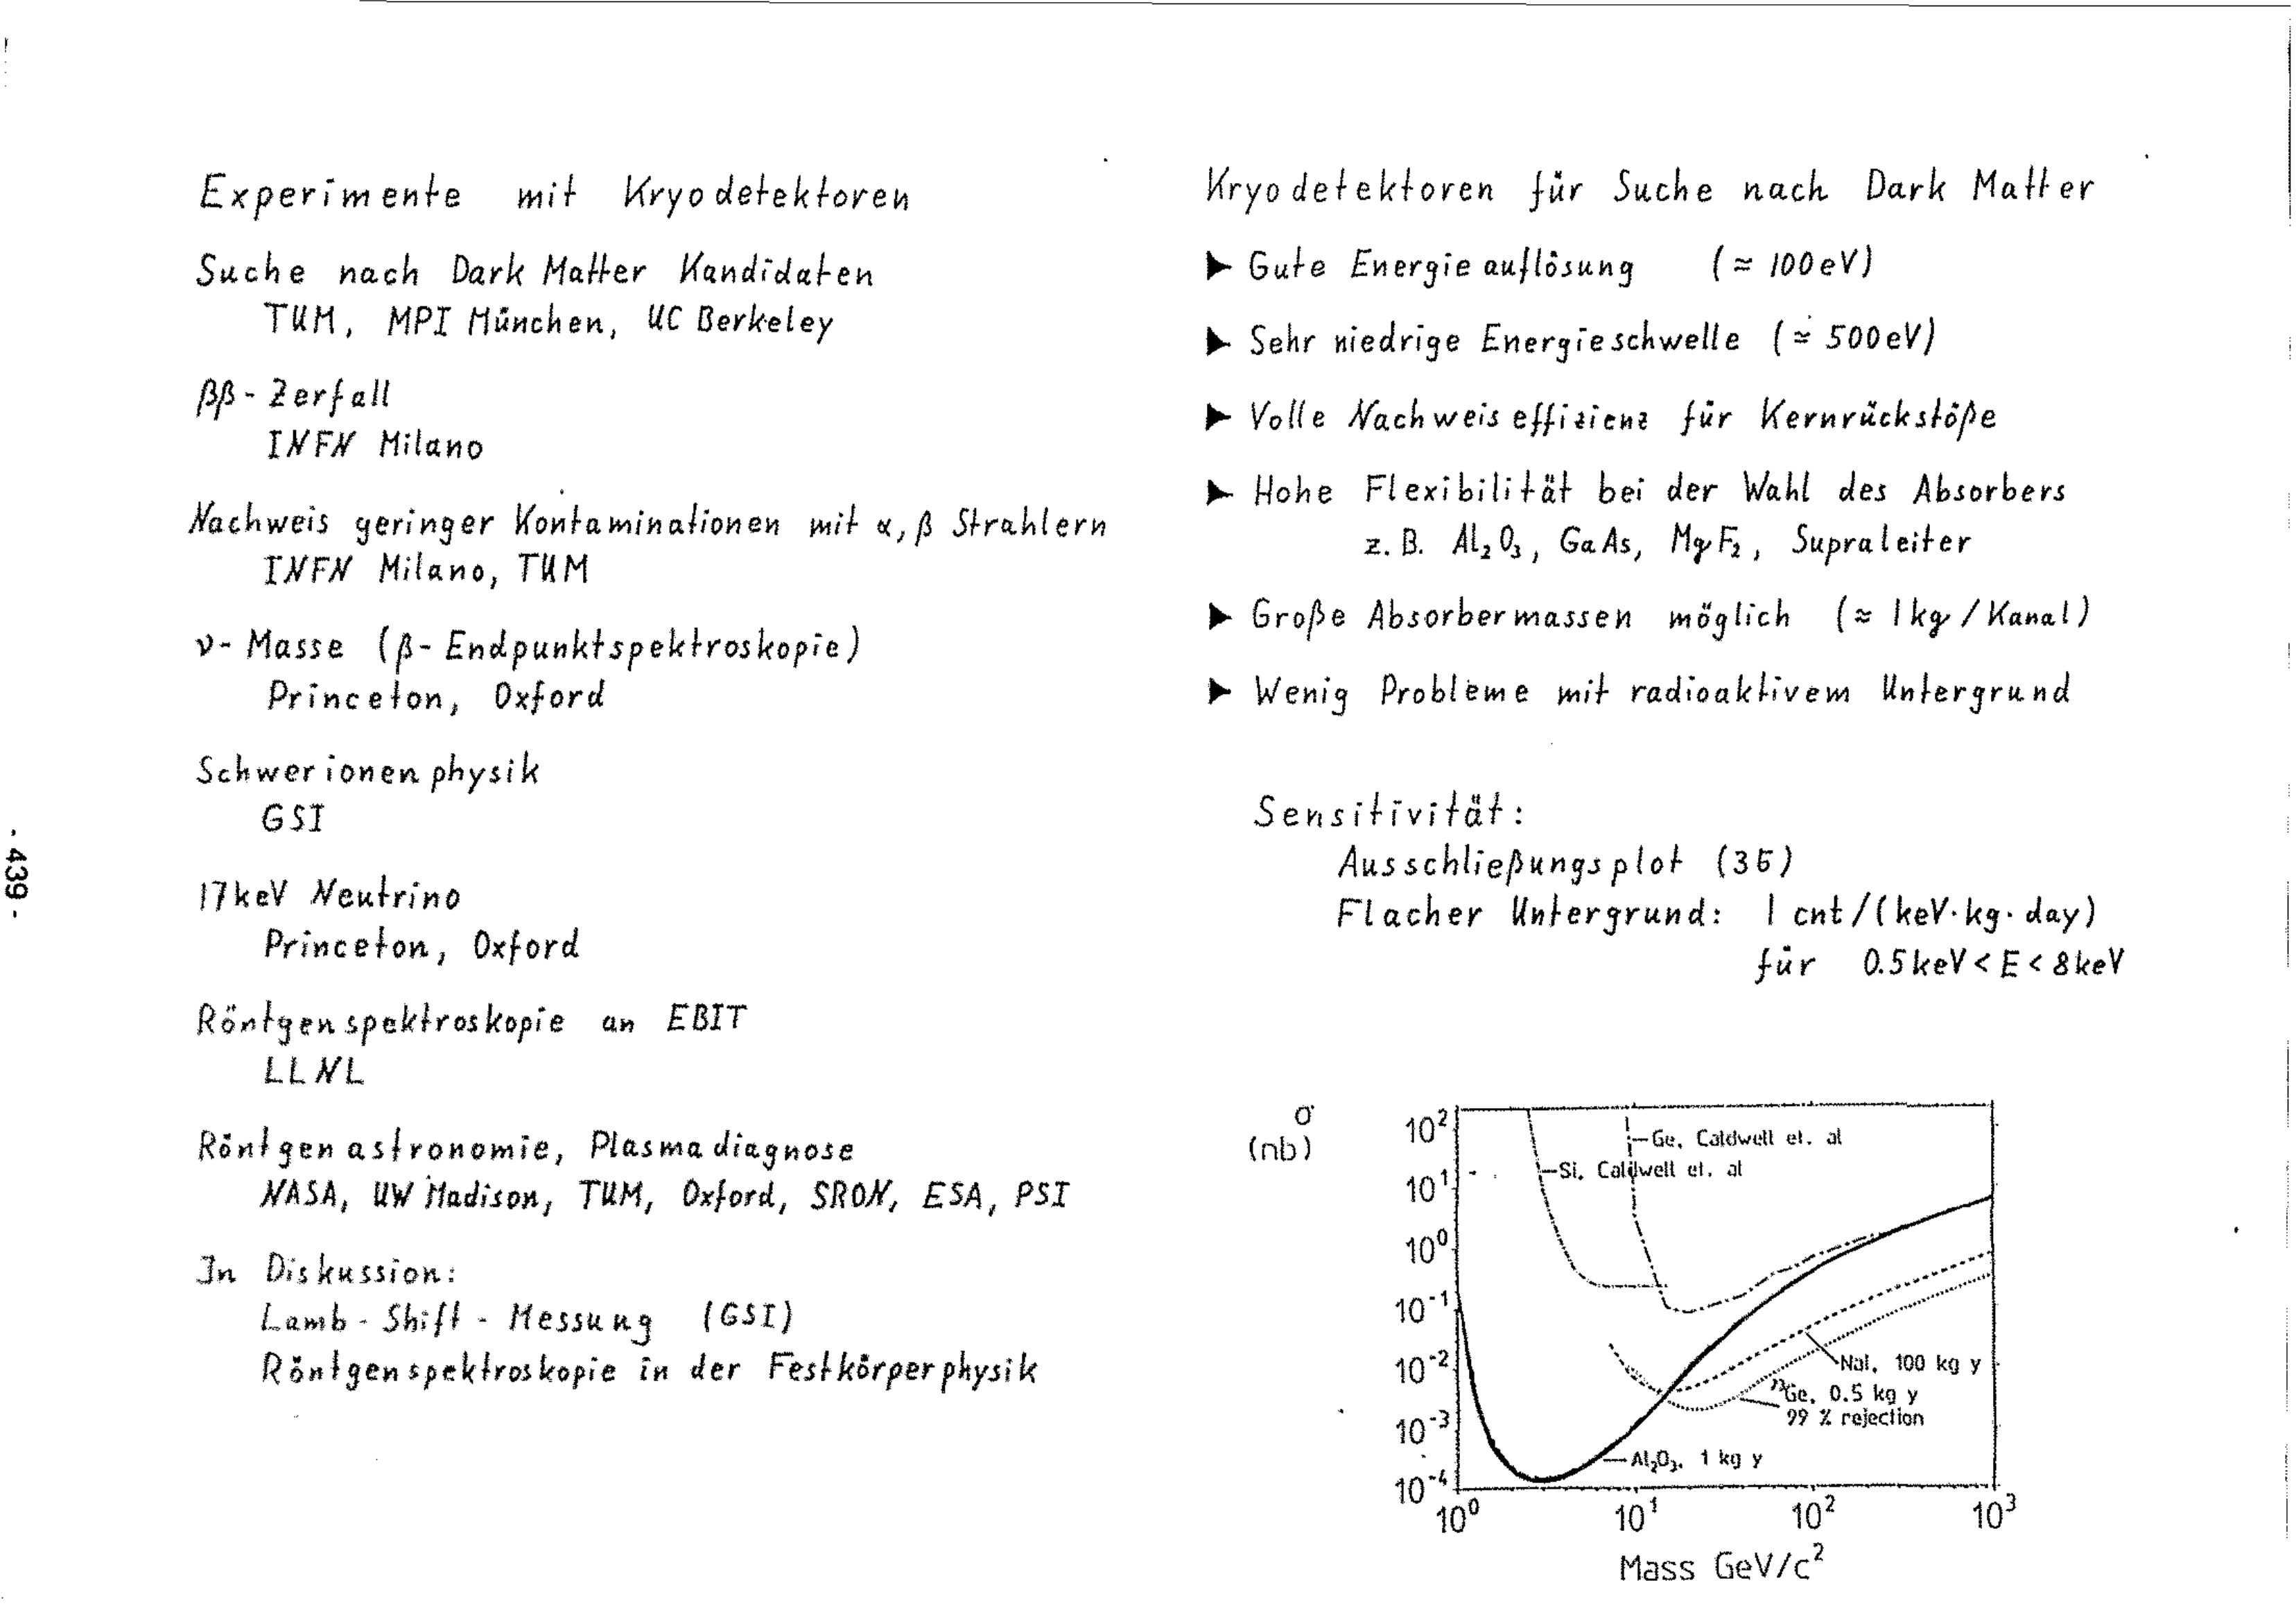 Experimente mit Kryodetektoren
Suche nach Dark Matter Kandidaten
TUM, MPI München, UC Berkeley
ββ-Zerfall
INFN Milano
Nachweis geringer Kontaminationen mit α, β Strahlern
INFN Milano, TUM
ν-Masse (β-Endpunktspektroskopie)
Princeton, Oxford
Schwerionenphysik
GSI
17keV Neutrino
Princeton, Oxford
Röntgenspektroskopie an EBIT
LLNL
Röntgenastronomie, Plasmadiagnose
NASA, UW Madison, TUM, Oxford, SRON, ESA, PSI
In Diskussion:
Lamb-Shift-Messung (GSI)
Röntgenspektroskopie in der Festkörperphysik
- 439 -
Kryodetektoren für Suche nach Dark Matter
► Gute Energieauflösung (≈ 100eV)
► Sehr niedrige Energieschwelle (≈ 500eV)
► Volle Nachweiseffizienz für Kernrückstöße
► Hohe Flexibilität bei der Wahl des Absorbers
z.B. Al₂O₃, GaAs, MgF₂, Supraleiter
► Große Absorbermassen möglich (≈ 1kg/Kanal)
► Wenig Probleme mit radioaktivem Untergrund
Sensitivität:
Ausschließungsplot (3σ)
Flacher Untergrund: 1 cnt/(keV·kg·day)
für 0.5keV < E < 8keV
σ
(nb)
10²
10¹
10⁰
10⁻¹
10⁻²
10⁻³
10⁻⁴
Ge, Caldwell et. al
Si, Caldwell et. al
NaI, 100 kg y
⁷³Ge, 0.5 kg y
99 % rejection
Al₂O₃, 1 kg y
10⁰ 10¹ 10² 10³
Mass GeV/c²